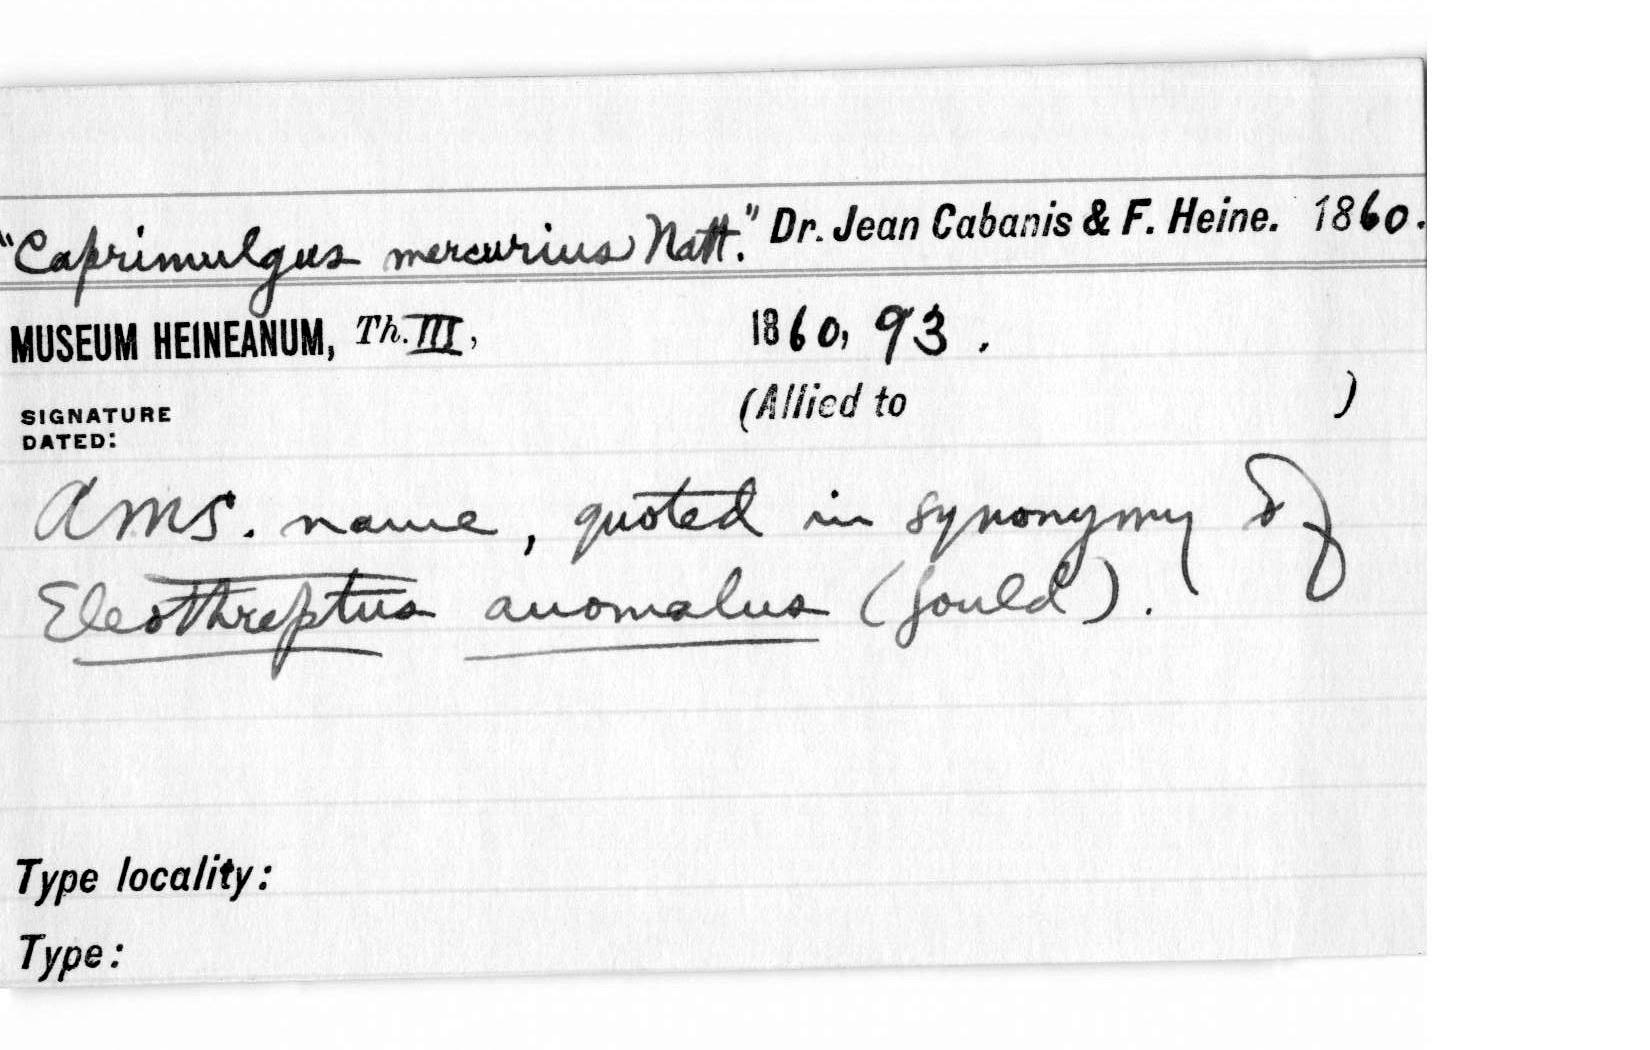 "Caprimulgus mercurius Natt." Dr. Jean Cabanis & F. Heine. 1860.
MUSEUM HEINEANUM, Th. III, 1860, 93.
(Allied to )
SIGNATURE
DATED:
A MS. name, quoted in synonymy of
Eleothreptus anomalus (Gould).
Type locality:
Type: